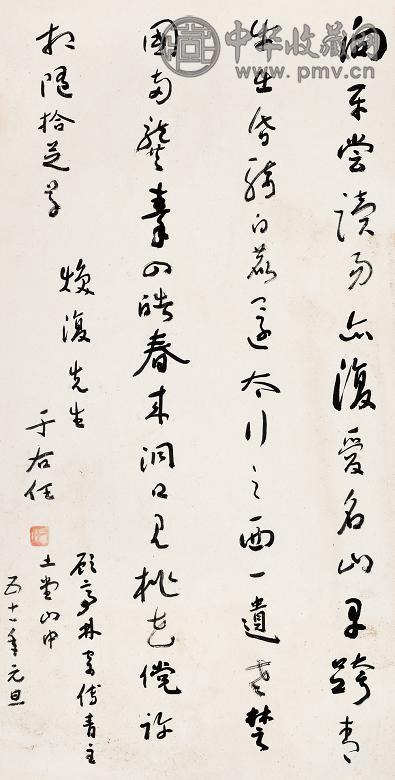 中华收藏网
www.pmv.cn
向平嘗讀易亦復愛名山早跨青
牛出昏騎白鹿還太行之西一遺老楚
國兩龔秦四皓春來洞口見桃花儻許
相隨拾芝草
煥復先生
于右任
顧亭林寄傅青主
土堂山中
五十一年元旦